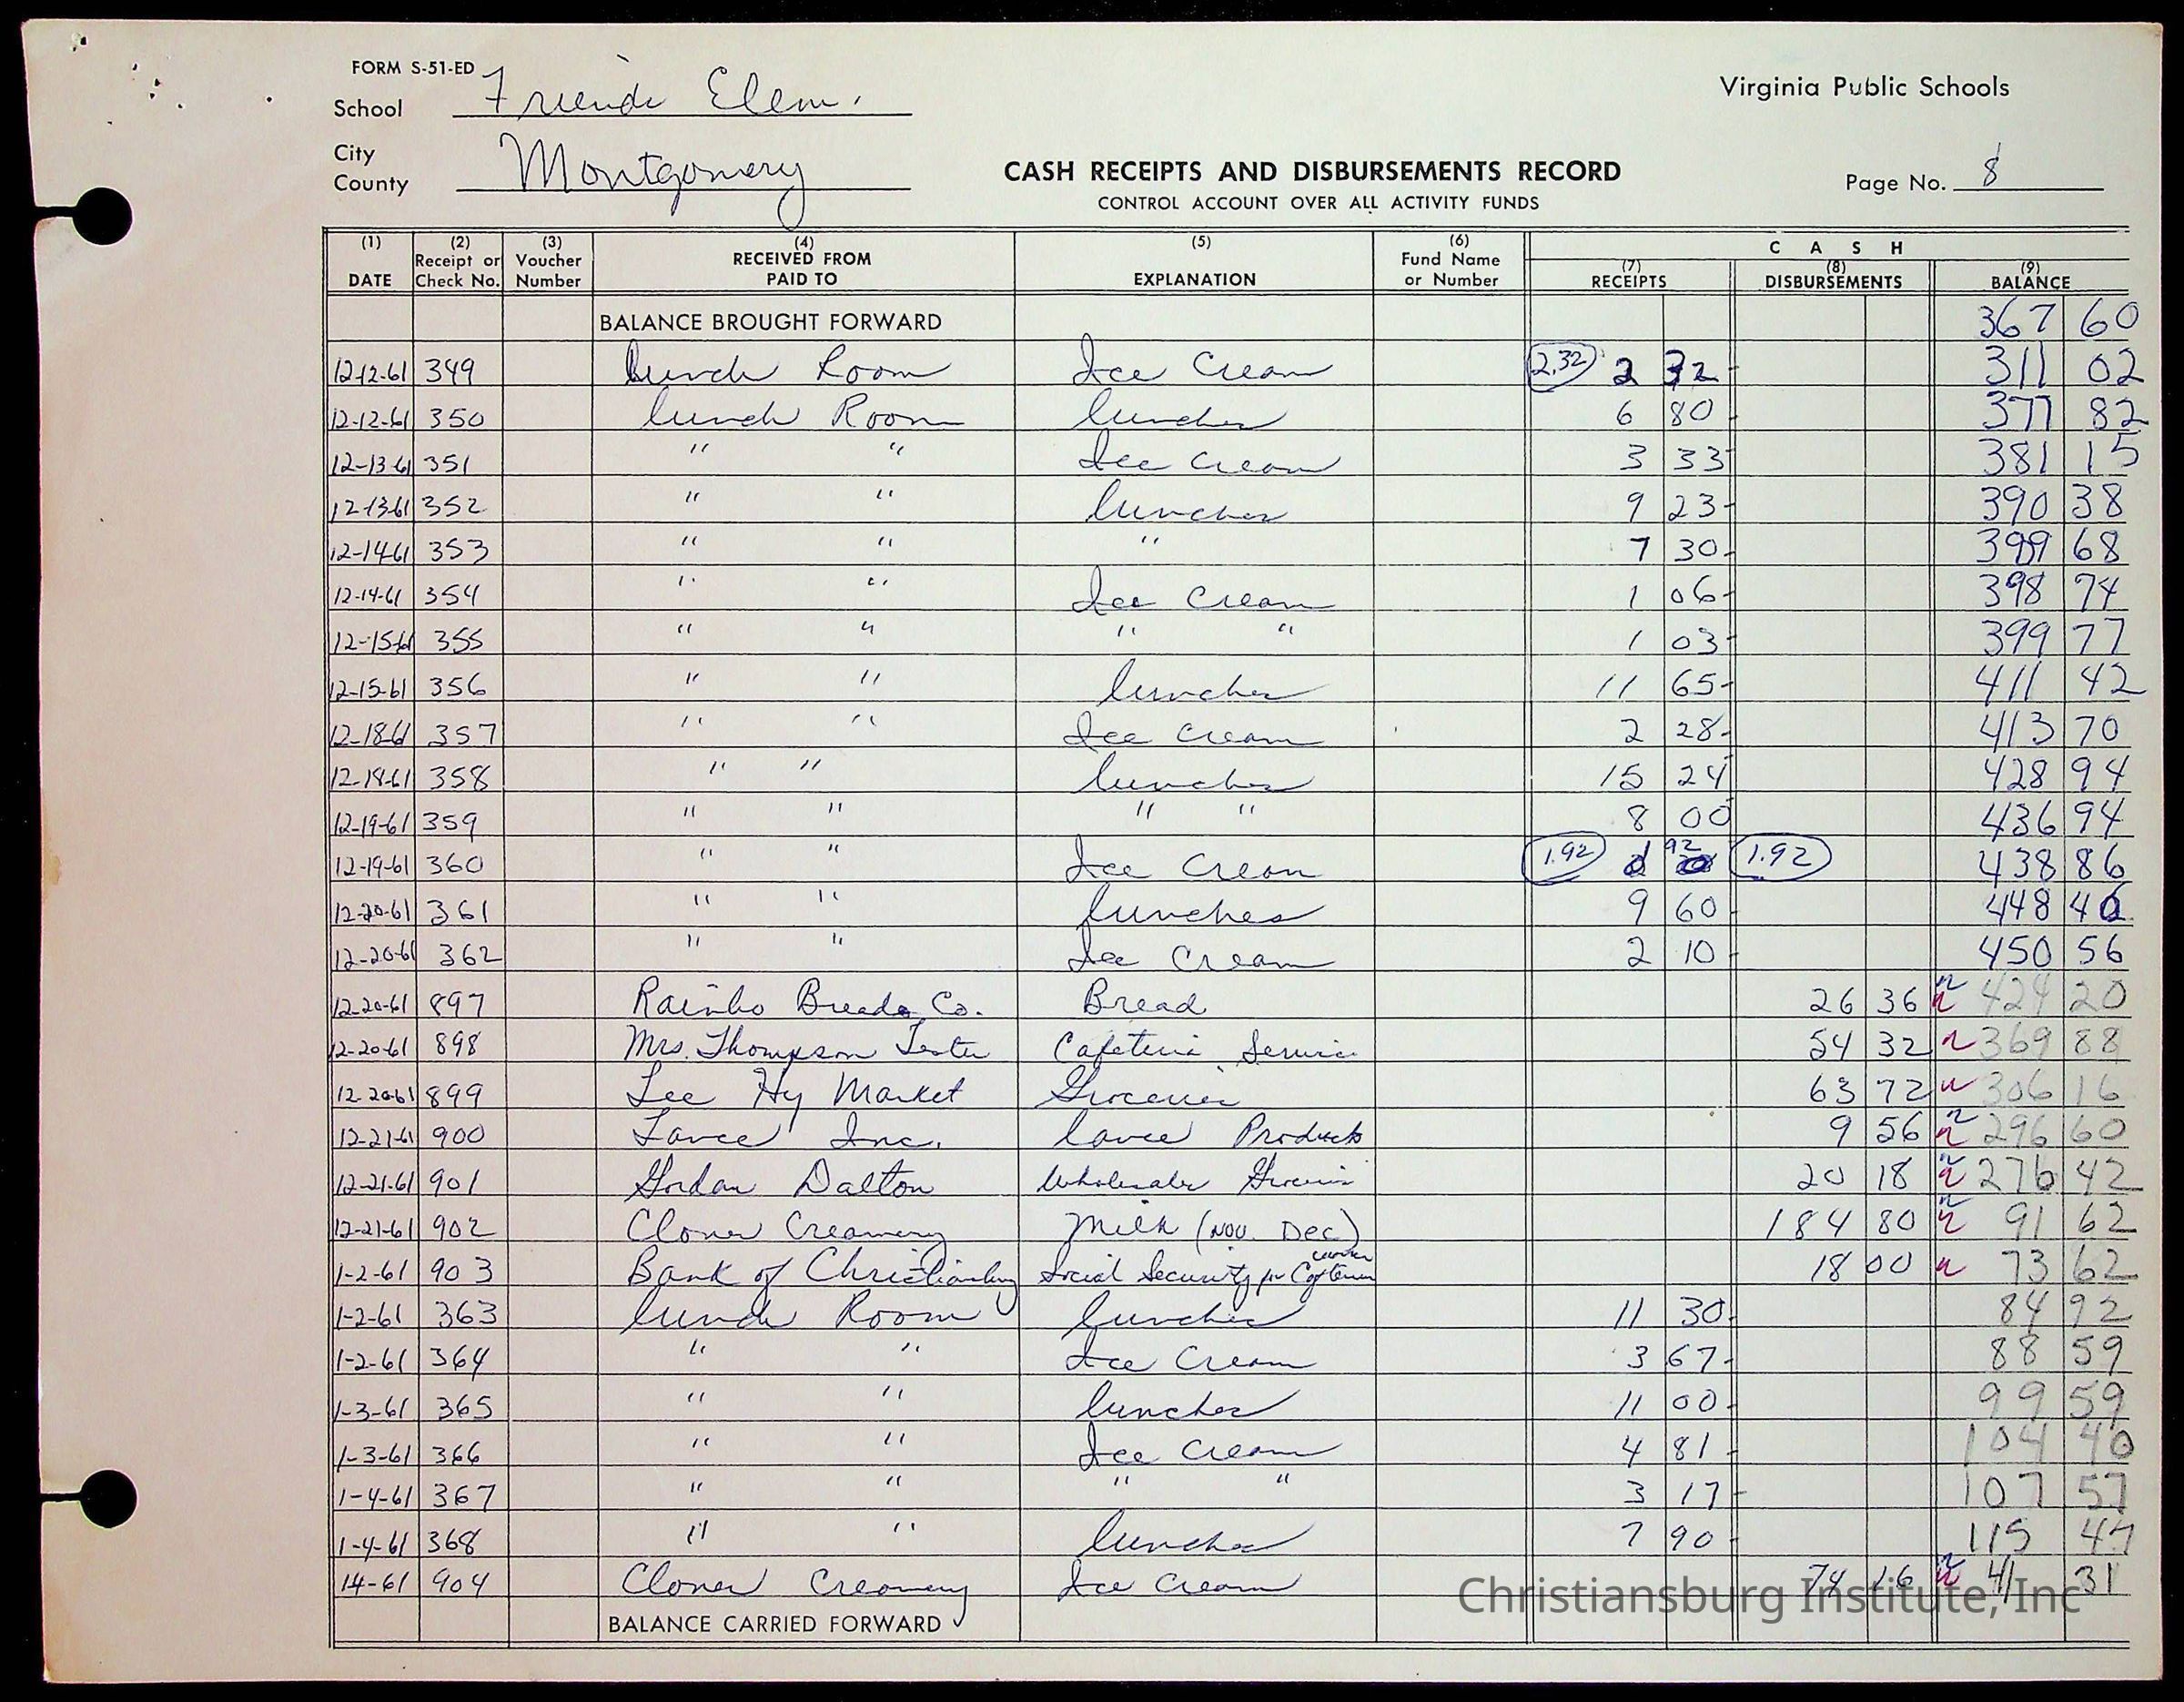 FORM S-51-ED
School Friends Elem.
Virginia Public Schools
City
County Montgomery
CASH RECEIPTS AND DISBURSEMENTS RECORD
CONTROL ACCOUNT OVER ALL ACTIVITY FUNDS
Page No. 8
(1) (2) (3) (4) (5) (6) C A S H
DATE Receipt or Check No. Voucher Number RECEIVED FROM PAID TO EXPLANATION Fund Name or Number (7) RECEIPTS (8) DISBURSEMENTS (9) BALANCE
BALANCE BROUGHT FORWARD 367 60
12-12-61 349 Lunch Room Ice Cream 2.32 2 32- 311 02
12-12-61 350 Lunch Room lunches 6 80- 377 82
12-13-61 351 " " Ice Cream 3 33- 381 15
12-13-61 352 " " lunches 9 23- 390 38
12-14-61 353 " " " 7 30- 68
12-14-61 354 " " Ice Cream 1 06- 398 74
12-15-61 355 " " " " 1 03- 399 77
12-15-61 356 " " lunches 11 65- 411 42
12-18-61 357 " " Ice Cream 2 28- 413 70
12-18-61 358 " " lunches 15 24 428 94
12-19-61 359 " " " " 8 00 436 94
12-19-61 360 " " Ice Cream 1.92 92 1.92 438 86
12-20-61 361 " " lunches 9 60- 448 46
12-20-61 362 " " Ice Cream 2 10- 450 56
12-20-61 897 Rainbo Breads Co. Bread 26 36 424 20
12-20-61 898 Mrs. Thompson Lester Cafeteria Service 54 32 369 88
12-20-61 899 Lee Hy Market Groceries 63 72 306 16
12-21-61 900 Lance Inc. Lance Products 9 56 296 60
12-21-61 901 Gordan Dalton Wholesaler Groceries 20 18 276 42
12-21-61 902 Clover Creamery Milk (Nov. Dec) 184 80 91 62
1-2-61 903 Bank of Christiansburg Social Security for Cafeteria worker 18 00 73 62
1-2-61 363 Lunch Room lunches 11 30- 84 92
1-2-61 364 " " Ice Cream 3 67- 88 59
1-3-61 365 " " lunches 11 00- 99 59
1-3-61 366 " " Ice Cream 4 81- 104 40
1-4-61 367 " " " " 3 17- 107 57
1-4-61 368 " " lunches 7 90- 115 47
1-4-61 904 Clover Creamery Ice Cream 74 16 41 31
BALANCE CARRIED FORWARD
Christiansburg Institute, Inc